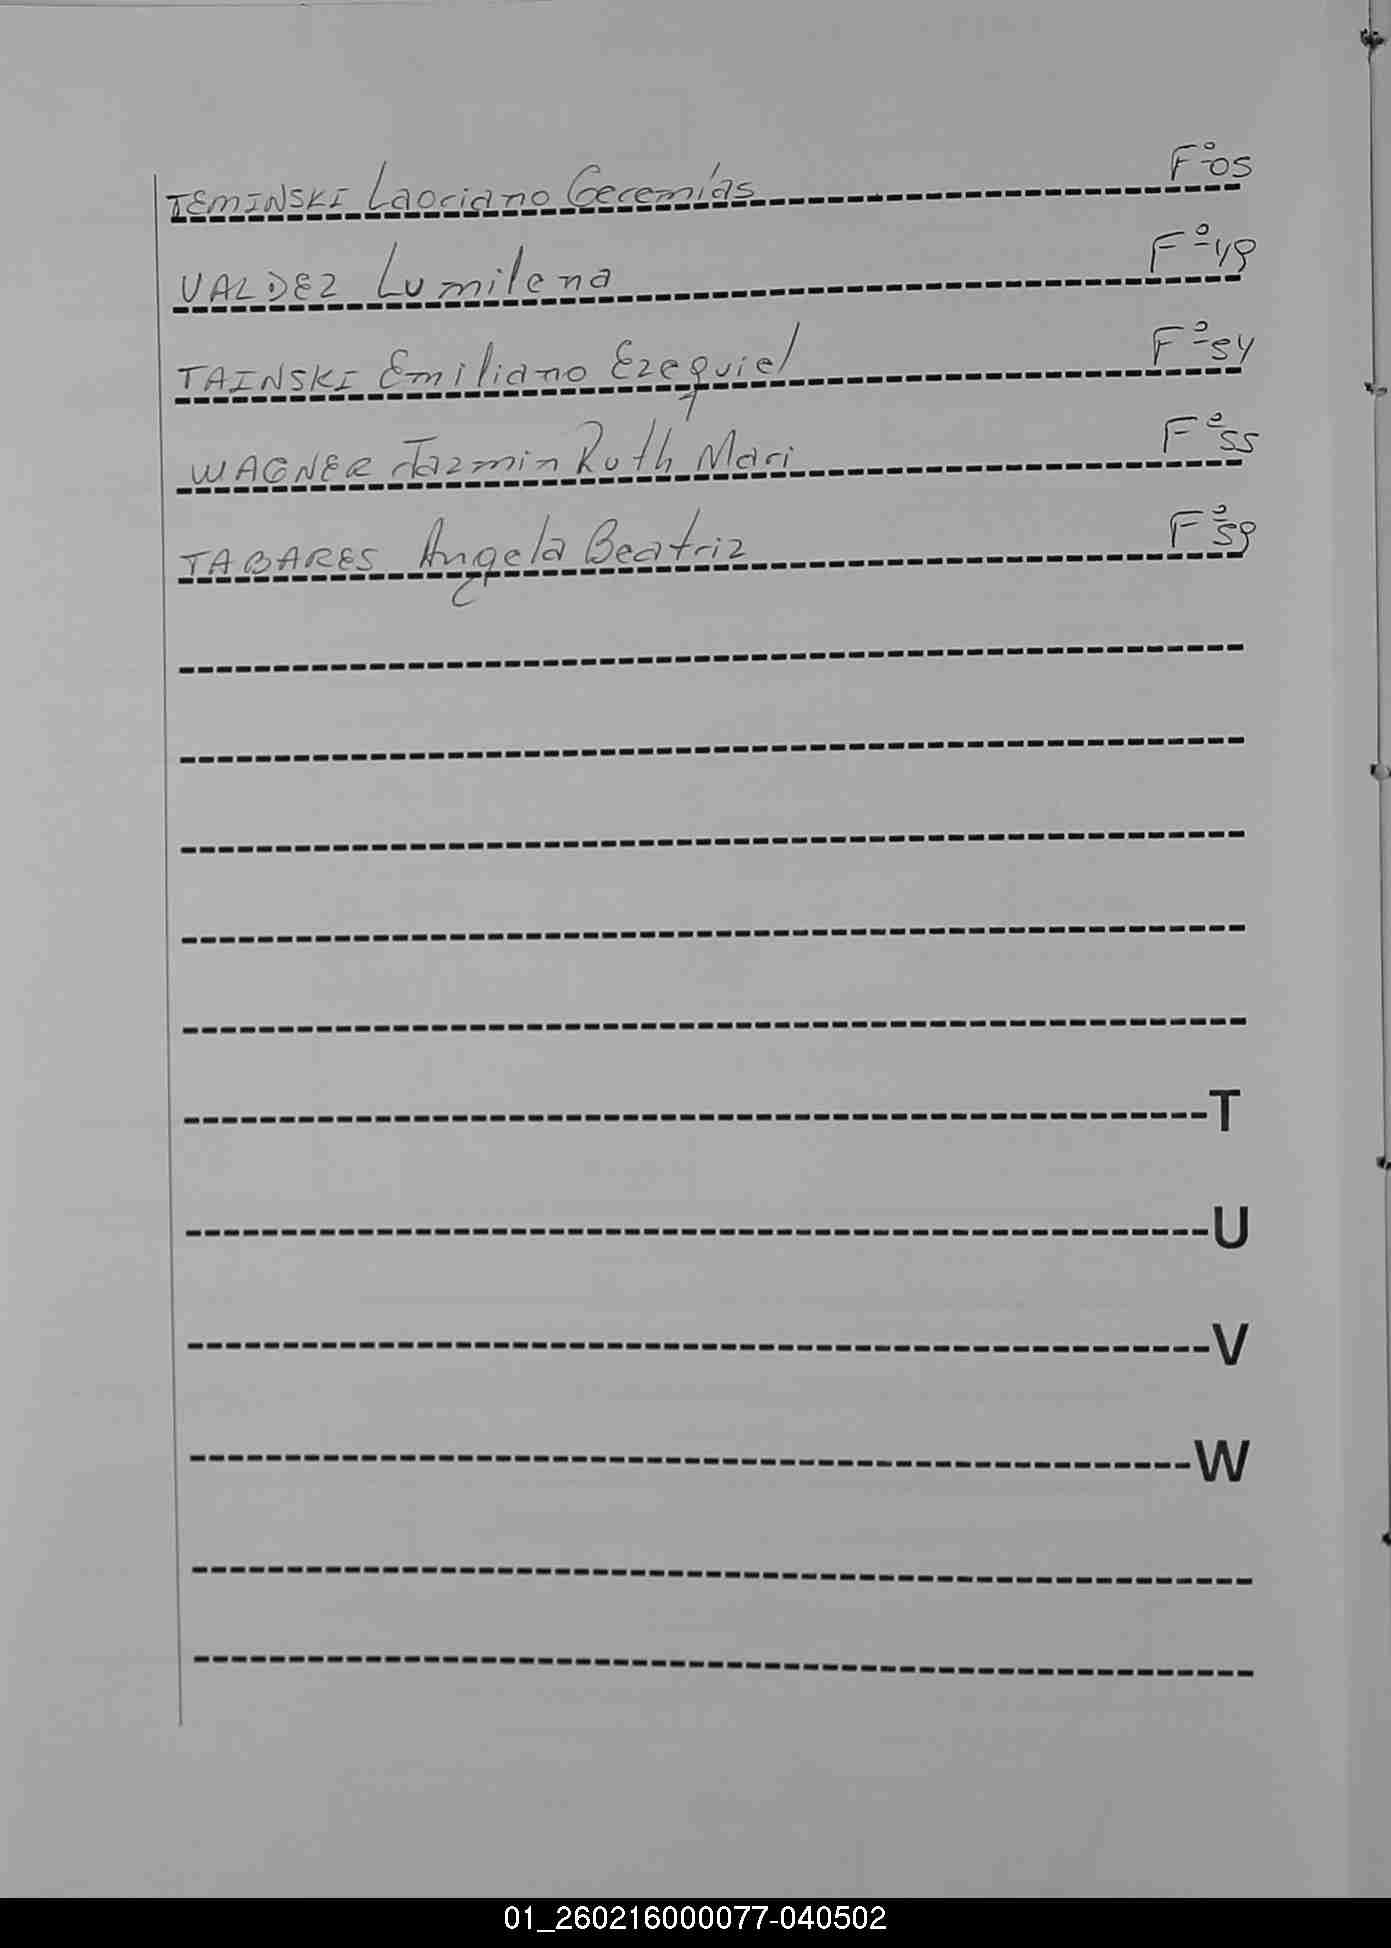 TEMINSKI Laociano Geremías F°05
VALDEZ Lumilena F°49
TAINSKI Emiliano Ezequiel F°54
WAGNER Jazmin Ruth Mari F°55
TABARES Angela Beatriz F°59
T
U
V
W
01_260216000077-040502